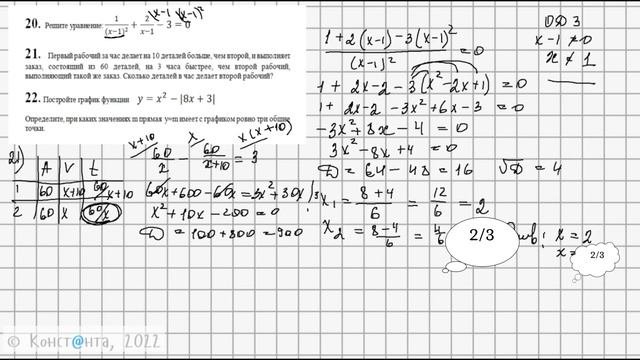 20. Решите уравнение: 1/(x−1)² + 2/(x−1) − 3 = 0
(x−1 (x−1)²
21. Первый рабочий за час делает на 10 деталей больше, чем второй, и выполняет
заказ, состоящий из 60 деталей, на 3 часа быстрее, чем второй рабочий,
выполняющий такой же заказ. Сколько деталей в час делает второй рабочий?
22. Постройте график функции y = x² − |8x + 3|
Определите, при каких значениях m прямая y=m имеет с графиком ровно три общие
точки.
(1 + 2(x−1) − 3(x−1)²)/(x−1)² = 0
ОДЗ
x−1 ≠ 0
x ≠ 1
1 + 2x−2 − 3(x²−2x+1) = 0
1 + 2x−2 − 3x² + 6x − 3 = 0
−3x² + 8x − 4 = 0
3x² − 8x + 4 = 0
D = 64 − 48 = 16 √D = 4
x₁ = (8+4)/6 = 12/6 = 2
x₂ = (8−4)/6 = 4/6
2/3
: x = 2
x =
2/3
21)
A V t
1 60 x+10 60/x+10
2 60 x 60/x
x+10 x x(x+10)
60/x − 60/(x+10) = 3
60x + 600 − 60x = 3x² + 30x |:3
x² + 10x − 200 = 0
D = 100 + 800 = 900
© Конст@нта, 2022